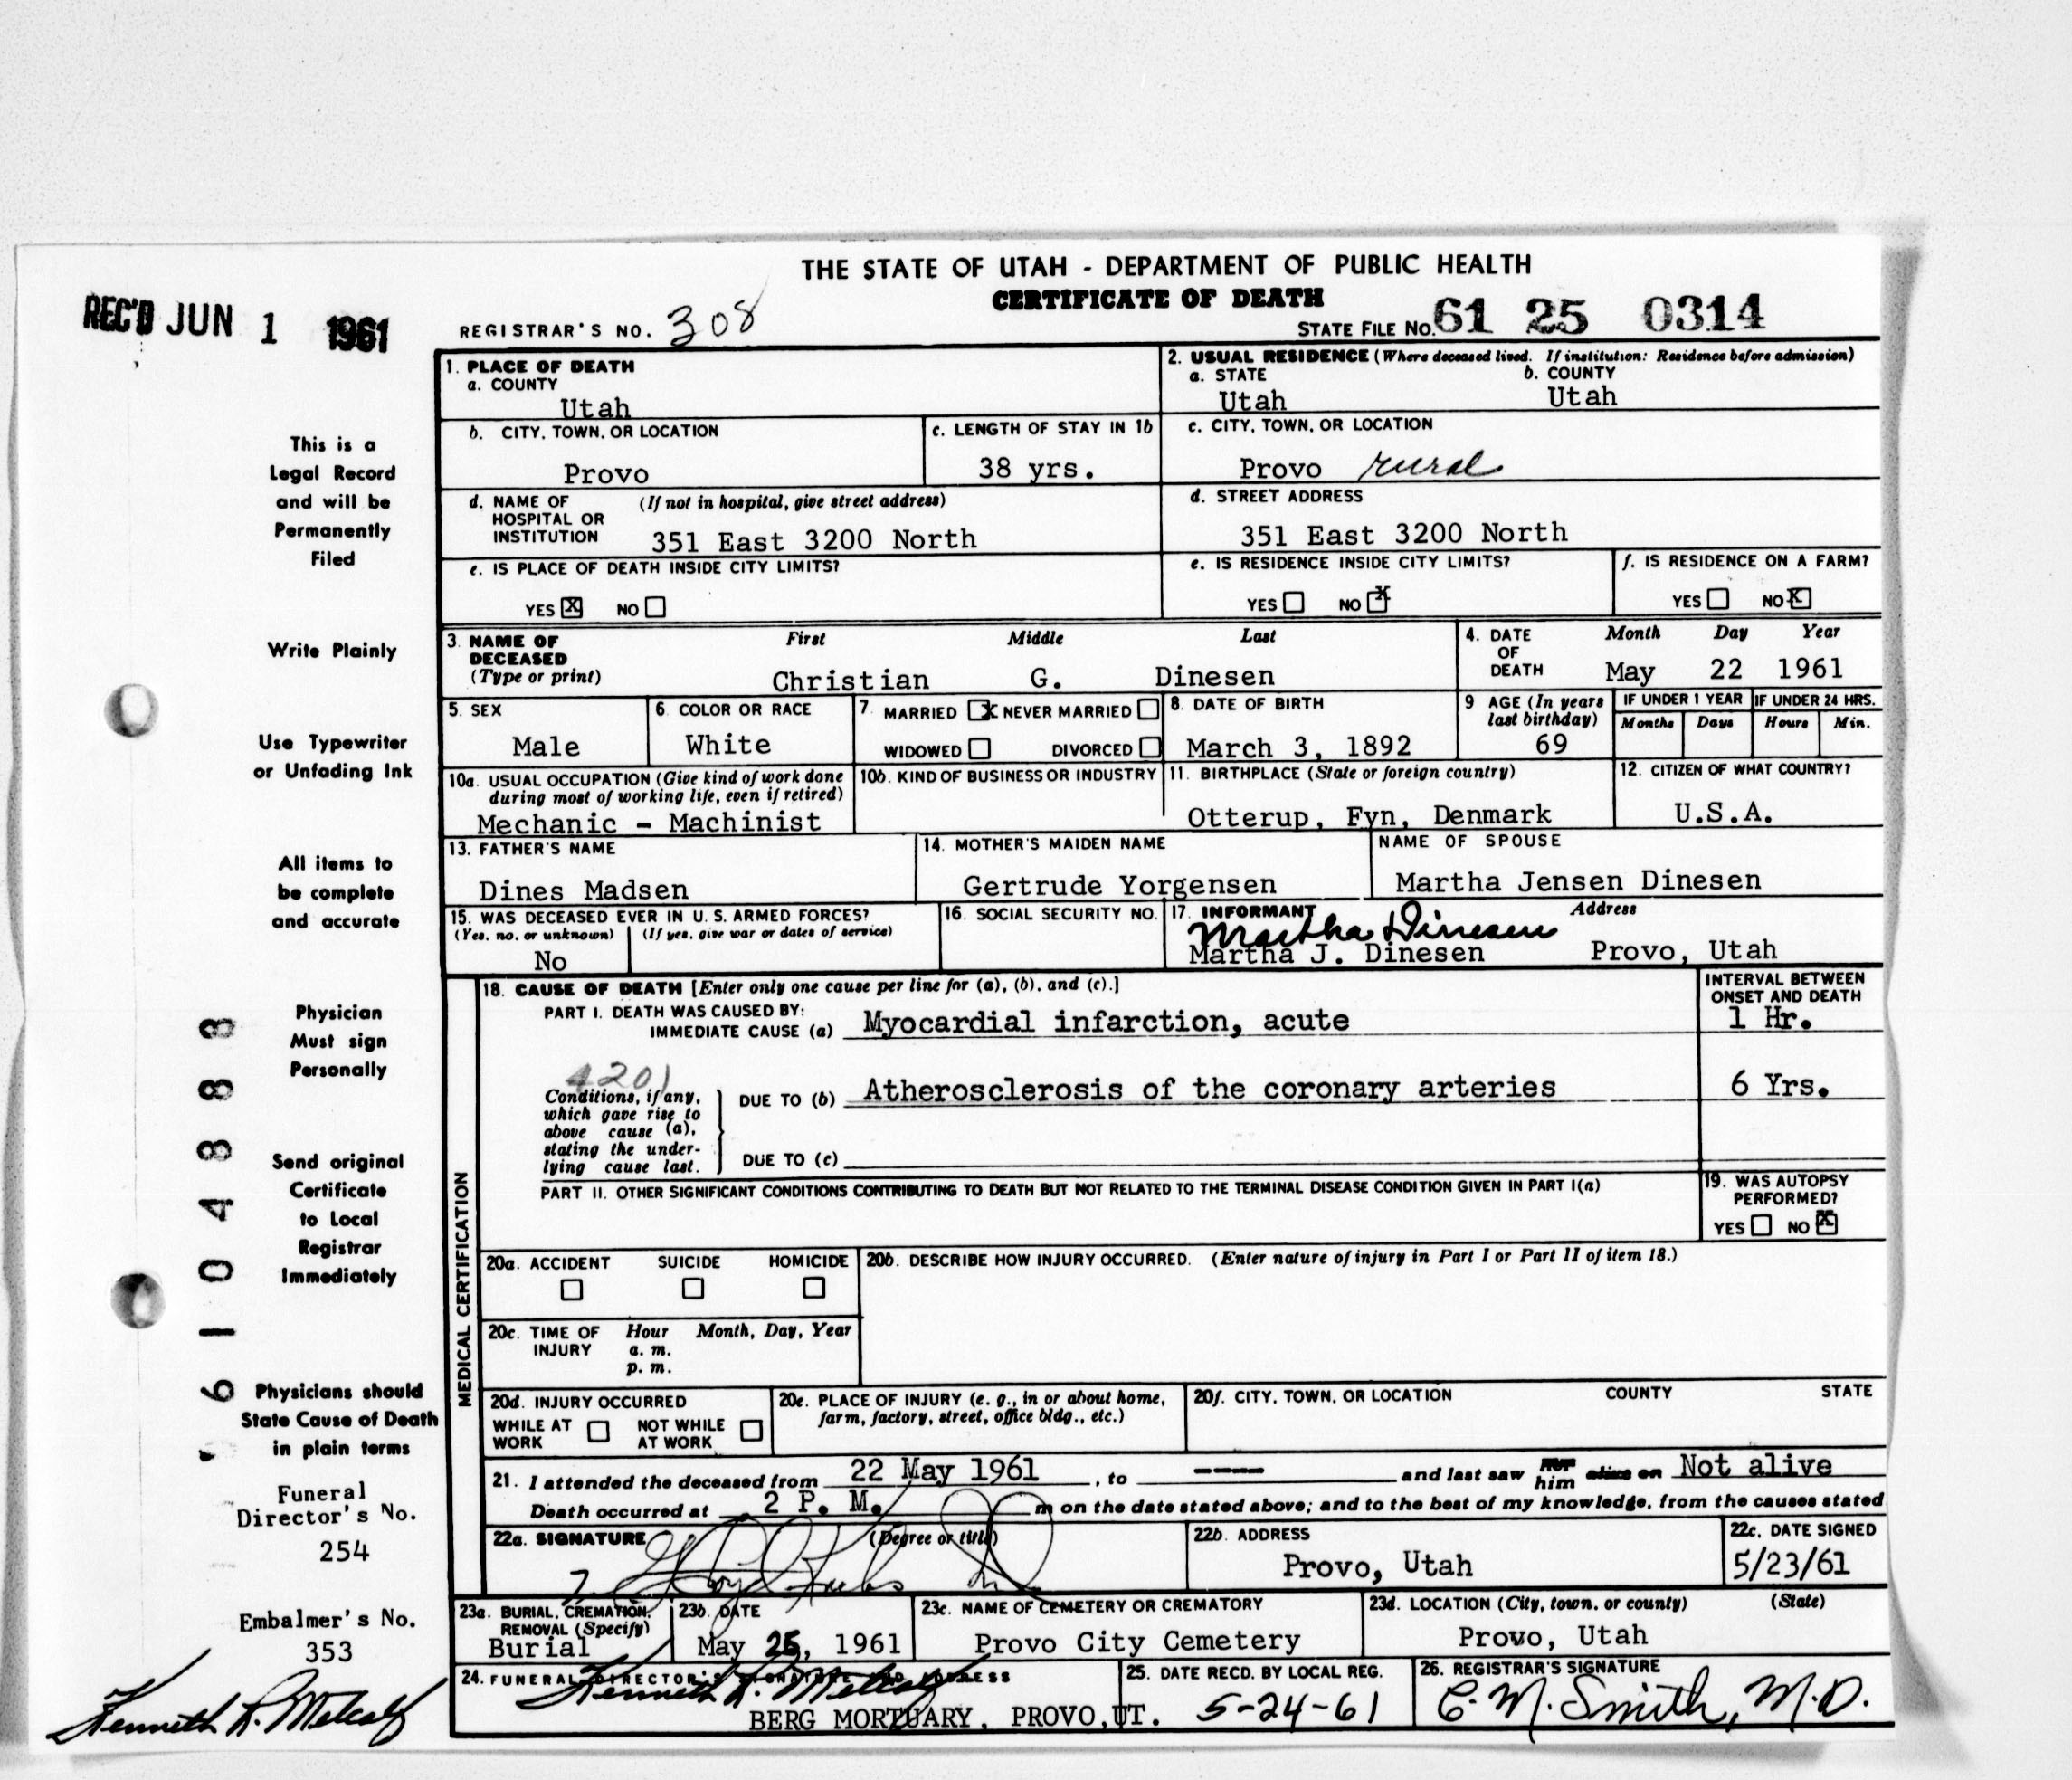 THE STATE OF UTAH - DEPARTMENT OF PUBLIC HEALTH
CERTIFICATE OF DEATH
REC'D JUN 1 1961
REGISTRAR'S NO. 308
STATE FILE NO. 61 25 0314
This is a
Legal Record
and will be
Permanently
Filed
Write Plainly
Use Typewriter
or Unfading Ink
All items to
be complete
and accurate
Physician
Must sign
Personally
Send original
Certificate
to Local
Registrar
Immediately
Physicians should
State Cause of Death
in plain terms
Funeral
Director's No.
254
Embalmer's No.
353
Kenneth R. Metcalf
6 1 0 4 8 8 3
1. PLACE OF DEATH
a. COUNTY
Utah
2. USUAL RESIDENCE (Where deceased lived. If institution: Residence before admission)
a. STATE b. COUNTY
Utah Utah
b. CITY, TOWN, OR LOCATION
Provo
c. LENGTH OF STAY IN 1b
38 yrs.
c. CITY, TOWN, OR LOCATION
Provo rural
d. NAME OF (If not in hospital, give street address)
HOSPITAL OR
INSTITUTION 351 East 3200 North
d. STREET ADDRESS
351 East 3200 North
e. IS PLACE OF DEATH INSIDE CITY LIMITS?
YES X NO
e. IS RESIDENCE INSIDE CITY LIMITS?
YES NO X
f. IS RESIDENCE ON A FARM?
YES NO X
3. NAME OF First Middle Last
DECEASED
(Type or print) Christian G. Dinesen
4. DATE Month Day Year
OF
DEATH May 22 1961
5. SEX
Male
6. COLOR OR RACE
White
7. MARRIED X NEVER MARRIED
WIDOWED DIVORCED
8. DATE OF BIRTH
March 3, 1892
9 AGE (In years
last birthday)
69
IF UNDER 1 YEAR IF UNDER 24 HRS.
Months Days Hours Min.
10a. USUAL OCCUPATION (Give kind of work done
during most of working life, even if retired)
Mechanic - Machinist
10b. KIND OF BUSINESS OR INDUSTRY
11. BIRTHPLACE (State or foreign country)
Otterup, Fyn, Denmark
12. CITIZEN OF WHAT COUNTRY?
U.S.A.
13. FATHER'S NAME
Dines Madsen
14. MOTHER'S MAIDEN NAME
Gertrude Yorgensen
NAME OF SPOUSE
Martha Jensen Dinesen
15. WAS DECEASED EVER IN U. S. ARMED FORCES?
(Yes, no, or unknown) (If yes, give war or dates of service)
No
16. SOCIAL SECURITY NO.
17. INFORMANT Address
Martha Dinesen
Martha J. Dinesen Provo, Utah
MEDICAL CERTIFICATION
18. CAUSE OF DEATH [Enter only one cause per line for (a), (b), and (c).]
INTERVAL BETWEEN
ONSET AND DEATH
PART I. DEATH WAS CAUSED BY:
IMMEDIATE CAUSE (a) Myocardial infarction, acute 1 Hr.
4201
Conditions, if any,
which gave rise to
above cause (a),
stating the under-
lying cause last.
DUE TO (b) Atherosclerosis of the coronary arteries 6 Yrs.
DUE TO (c)
PART II. OTHER SIGNIFICANT CONDITIONS CONTRIBUTING TO DEATH BUT NOT RELATED TO THE TERMINAL DISEASE CONDITION GIVEN IN PART I(a)
19. WAS AUTOPSY
PERFORMED?
YES NO X
20a. ACCIDENT SUICIDE HOMICIDE
20b. DESCRIBE HOW INJURY OCCURRED. (Enter nature of injury in Part I or Part II of item 18.)
20c. TIME OF Hour Month, Day, Year
INJURY a. m.
p. m.
20d. INJURY OCCURRED
WHILE AT NOT WHILE
WORK AT WORK
20e. PLACE OF INJURY (e. g., in or about home,
farm, factory, street, office bldg., etc.)
20f. CITY, TOWN, OR LOCATION COUNTY STATE
21. I attended the deceased from 22 May 1961, to ---- and last saw her him alive on Not alive
Death occurred at 2 P. M. m on the date stated above; and to the best of my knowledge, from the causes stated
22a. SIGNATURE (Degree or title)
22b. ADDRESS
Provo, Utah
22c. DATE SIGNED
5/23/61
23a. BURIAL, CREMATION,
REMOVAL (Specify)
Burial
23b. DATE
May 25, 1961
23c. NAME OF CEMETERY OR CREMATORY
Provo City Cemetery
23d. LOCATION (City, town, or county) (State)
Provo, Utah
24. FUNERAL DIRECTOR'S SIGNATURE AND ADDRESS
Kenneth R. Metcalf
BERG MORTUARY, PROVO, UT.
25. DATE RECD. BY LOCAL REG.
5-24-61
26. REGISTRAR'S SIGNATURE
C. M. Smith, M.D.